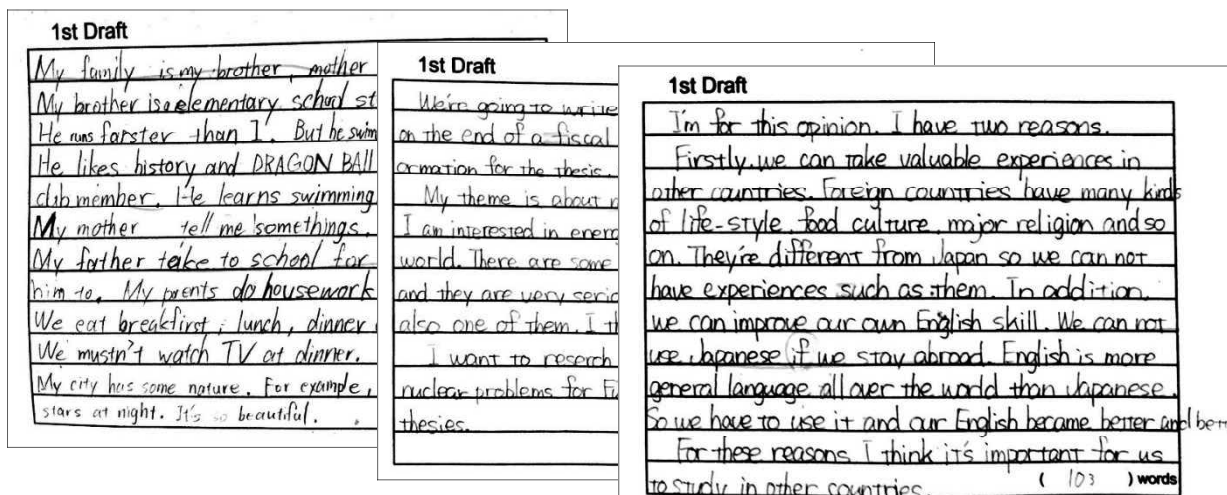 1st Draft
My family is my brother, mother
My brother is a elementary school st
He runs farster than I. But he swim
He likes history and DRAGON BALL
club member. He learns swimming
My mother tell me somethings.
My father take to school for
him to. My prents do housework
We eat breakfirst, lunch, dinner
We mustn't watch TV at dinner.
My city has some nature. For example,
stars at night. It's so beautiful.
1st Draft
We're going to write
on the end of a fiscal
ormation for the thesis.
My theme is about n
I am interested in energ
world. There are some
and they are very serio
also one of them. I th
I want to reserch
nuclear problems for Fu
thesies.
1st Draft
I'm for this opinion. I have two reasons.
Firstly, we can take valuable experiences in
other countries. Foreign countries have many kinds
of life-style, food culture, major religion and so
on. They're different from Japan so we can not
have experiences such as them. In addition,
we can improve our own English skill. We can not
use Japanese if we stay abroad. English is more
general language all over the world than Japanese.
So we have to use it and our English became better and bett
For these reasons, I think it's important for us
to study in other countries. ( 103 ) words